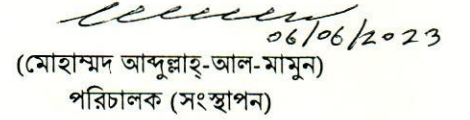 06/06/2023
(মোহাম্মদ আব্দুল্লাহ্-আল-মামুন)
পরিচালক (সংস্থাপন)